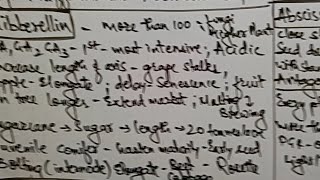 Gibberellin - more than 100, fungi
Higher Plant
GA1, GA2, GA3 - 1st - most intensive, Acidic
Increase length of axis - grape stalks
Apple - Elongate, delay - Senescence, fruit
on tree longer - Extend market, Malting &
Brewing
Sugarcane → Sugar → length → 20 tonnes/acre
Juvenile conifer - hasten maturity - Early seed
Bolting (internode) Elongate - Beet - Rosette
Cabbage
Absciss
close s
Seed do
with st
Antago
Every p
PGR -
Light